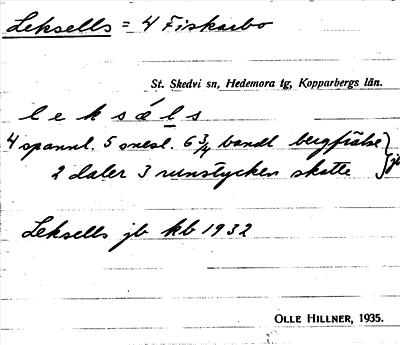 Leksells = 4 Fiskarbo
St. Skedvi sn, Hedemora tg, Kopparbergs län.
l e k s ǽ l s
4 spannl. 5 snesl. 6 3/4 bandl bergfrälse } jb
2 daler 3 runstycken skatte
Leksells jb kb 1932
OLLE HILLNER, 1935.